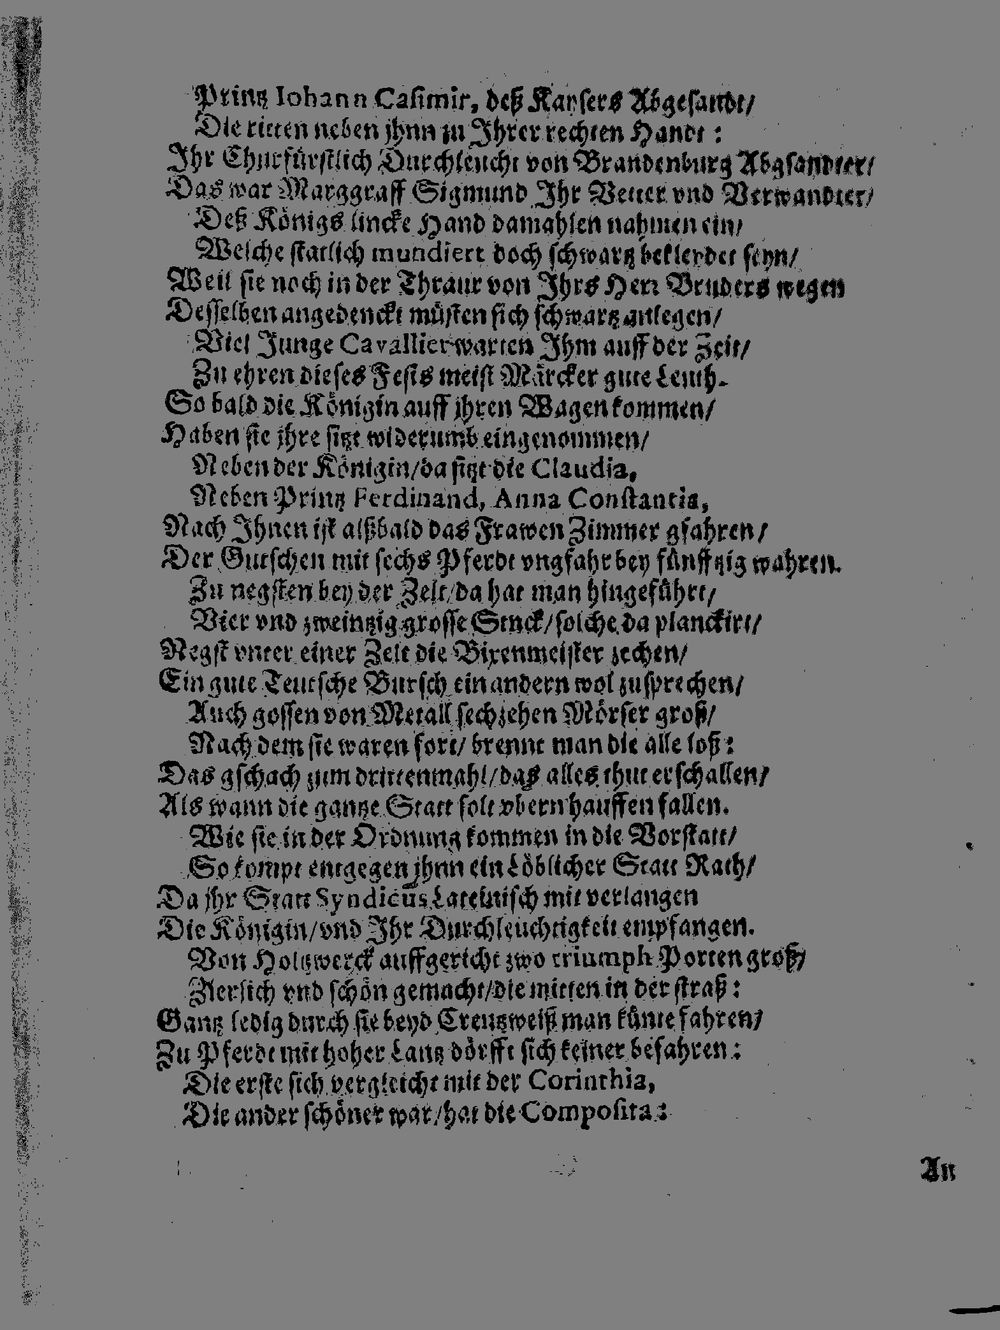 Printz Iohann Casimir, deß Kaysers Abgesandt/
Die ritten neben jhnn zu Ihrer rechten Handt :
Ihr Churfürstlich Durchleucht von Brandenburg Abgsandter/
Das war Marggraff Sigmund Ihr Vetter vnd Verwandter/
Deß Königs lincke Hand damahlen nahmen ein/
Welche statlich mundiert doch schwartz bekleydet seyn/
Weil sie noch in der Thraur von Ihrs Herr Bruders wegen
Desselben angedenckt müsten sich schwartz anlegen/
Viel Junge Cavallier warten Ihm auff der Zeit/
Zu ehren dieses Fests meist Märcker gute Leuth.
So bald die Königin auff jhren Wagen kommen/
Haben sie jhre sitzt widerumb eingenommen/
Neben der Königin/da sitzt die Claudia,
Neben Printz Ferdinand, Anna Constantia,
Nach Ihnen ist alßbald das Frawen Zimmer gfahren/
Der Gutschen mit sechs Pferdt vngfahr bey fünfftzig wahren.
Zu negsten bey der Zelt/da hat man hingeführt/
Vier vnd zweintzig grosse Stuck/solche da planckirt/
Negst vnter einer Zelt die Bixenmeister zechen/
Ein gute Teutsche Bursch einandern wol zusprechen/
Auch gossen von Metall sechzehen Mörser groß/
Nach dem sie waren fort/ brennt man die alle loß:
Das gschach zum drittenmahl/das alles thut erschallen/
Als wann die gantze Statt solt vbern hauffen fallen.
Wie sie in der Ordnung kommen in die Vorstatt/
So kompt entgegen jhnn ein Löblicher Statt Rath/
Da jhr Statt Syndicus Lateinisch mit verlangen
Die Königin/vnd Ihr Durchleuchtigkeit empfangen.
Von Holtzwerck auffgericht zwo triumph Porten groß/
Zierlich vnd schön gemacht/die mitten in der straß:
Gantz ledig durch sie beyd Creutzweiß man künte fahren/
Zu Pferdt mit hoher Lantz dörfft sich keiner befahren:
Die erste sich vergleicht mit der Corinthia,
Die ander schöner war/hat die Composita:
An